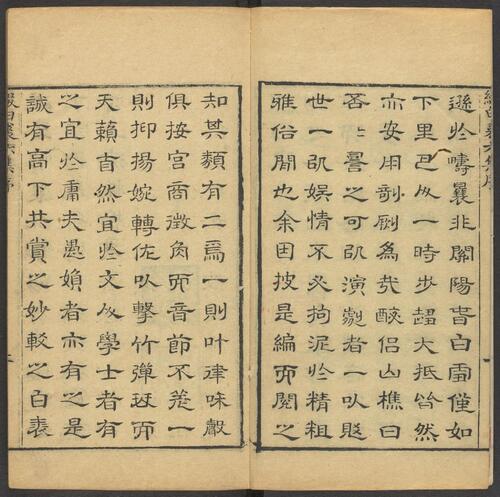 綴白裘六集序
遜於疇曩非關陽春白雪僅如
下里巴人一時步趨大抵皆然
亦安用剞劂為哉酸侶山樵曰
之可㕥演劇者一㕥
世一㕥娛情不必拘泥於精粗
雅俗間也余因披是編而閱之
知其類有二焉一則叶律
俱按宮商徵角而音節不差一
則抑揚婉轉佐㕥擊竹彈而
天籟自然宜於文人學士者有
之宜於庸夫愚婦者亦有之是
誠有高下共賞之妙較之白裘
綴白裘六集序